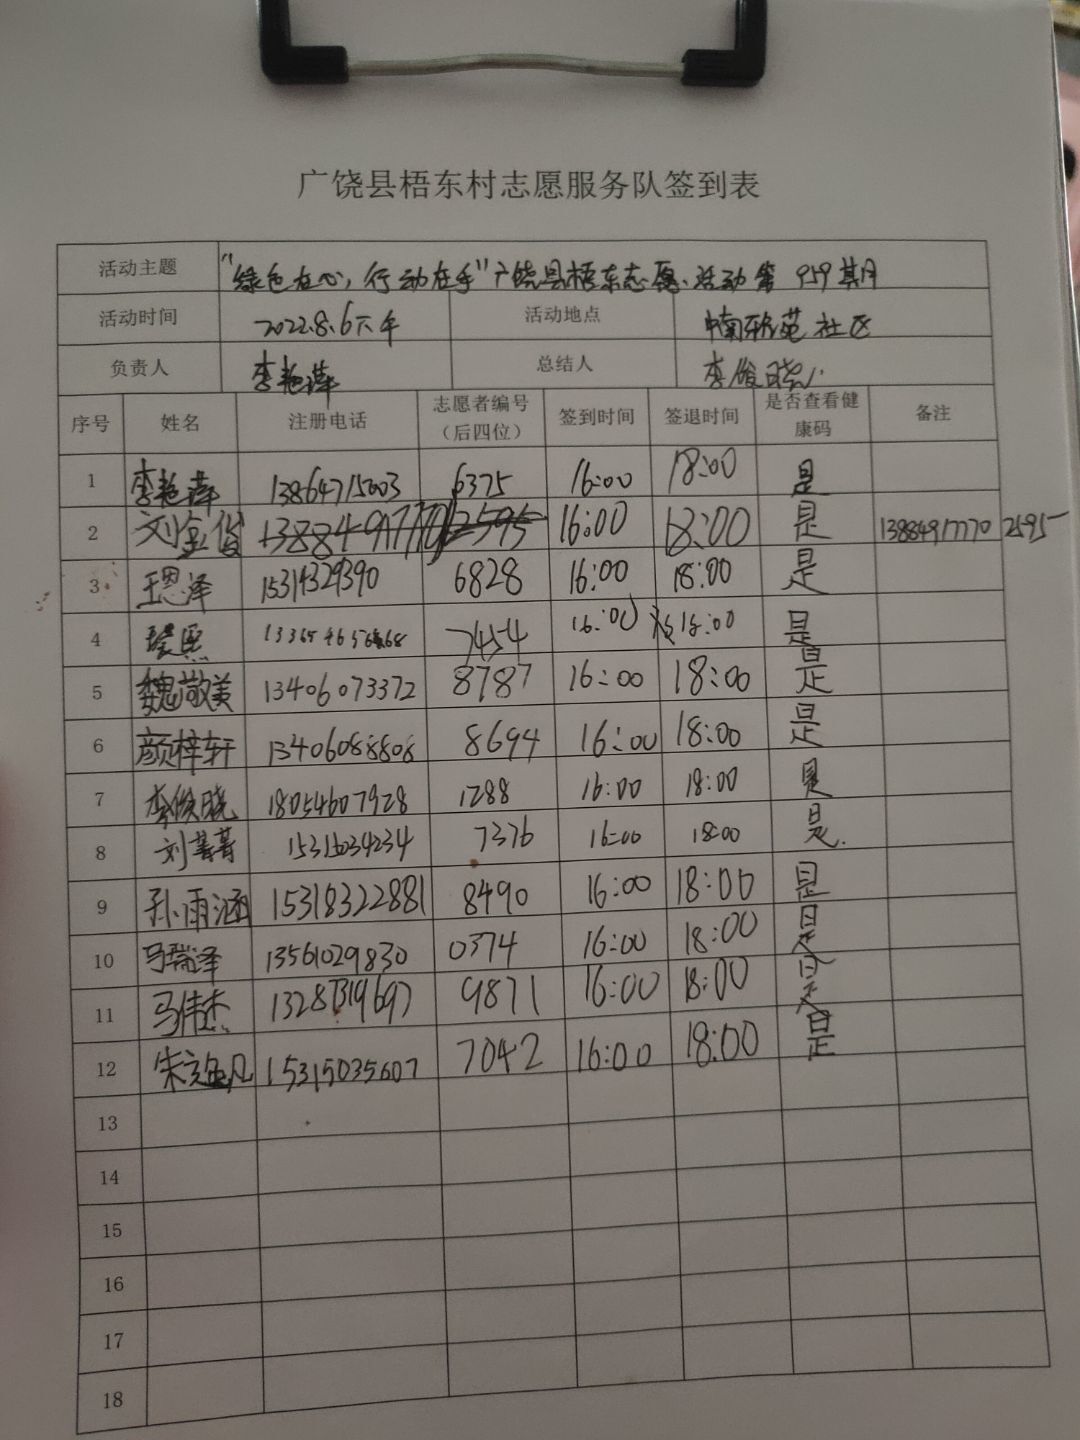 广饶县梧东村志愿服务队签到表
活动主题 “绿色在心,行动在手”广饶县梧东志愿、活动第959期
活动时间 2022.8.6下午 活动地点 中南社区
负责人 李艳萍 总结人 李俊晓
序号 姓名 注册电话 志愿者编号(后四位) 签到时间 签退时间 是否查看健康码 备注
1 李艳萍 13864715003 6375 16:00 18:00 是
2 刘金俊 13884917770 2595 16:00 18:00 是 13884917770 2595
3 王恩泽 15314329390 6828 16:00 18:00 是
4 7454 16:00 18:00 是
5 魏敬美 13406073372 8787 16:00 18:00 是
6 颜梓轩 13406088808 8694 16:00 18:00 是
7 李俊晓 18054607928 1288 16:00 18:00 是
8 刘菁菁 15315034234 7376 16:00 18:00 是.
9 孙雨涵 15318322881 8490 16:00 18:00 是
10 马瑞泽 13561029830 0374 16:00 18:00 是
11 马伟杰 13287319697 9871 16:00 18:00 是
12 朱 15315035607 7042 16:00 18:00 是
13
14
15
16
17
18